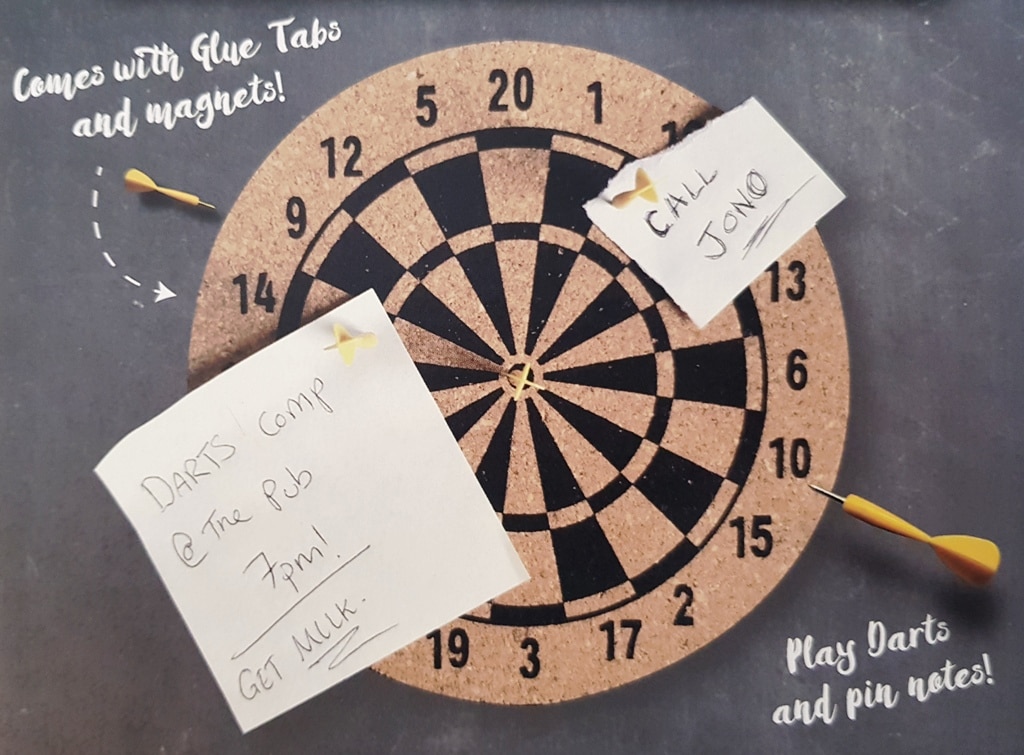 Comes with Glue Tabs
and magnets!
5 20 1
12
9
14
13
6
10
15
2
17
3
19
CALL
JONO
DARTS COMP
@ The Pub
7pm!
GET MILK.
Play Darts
and pin notes!